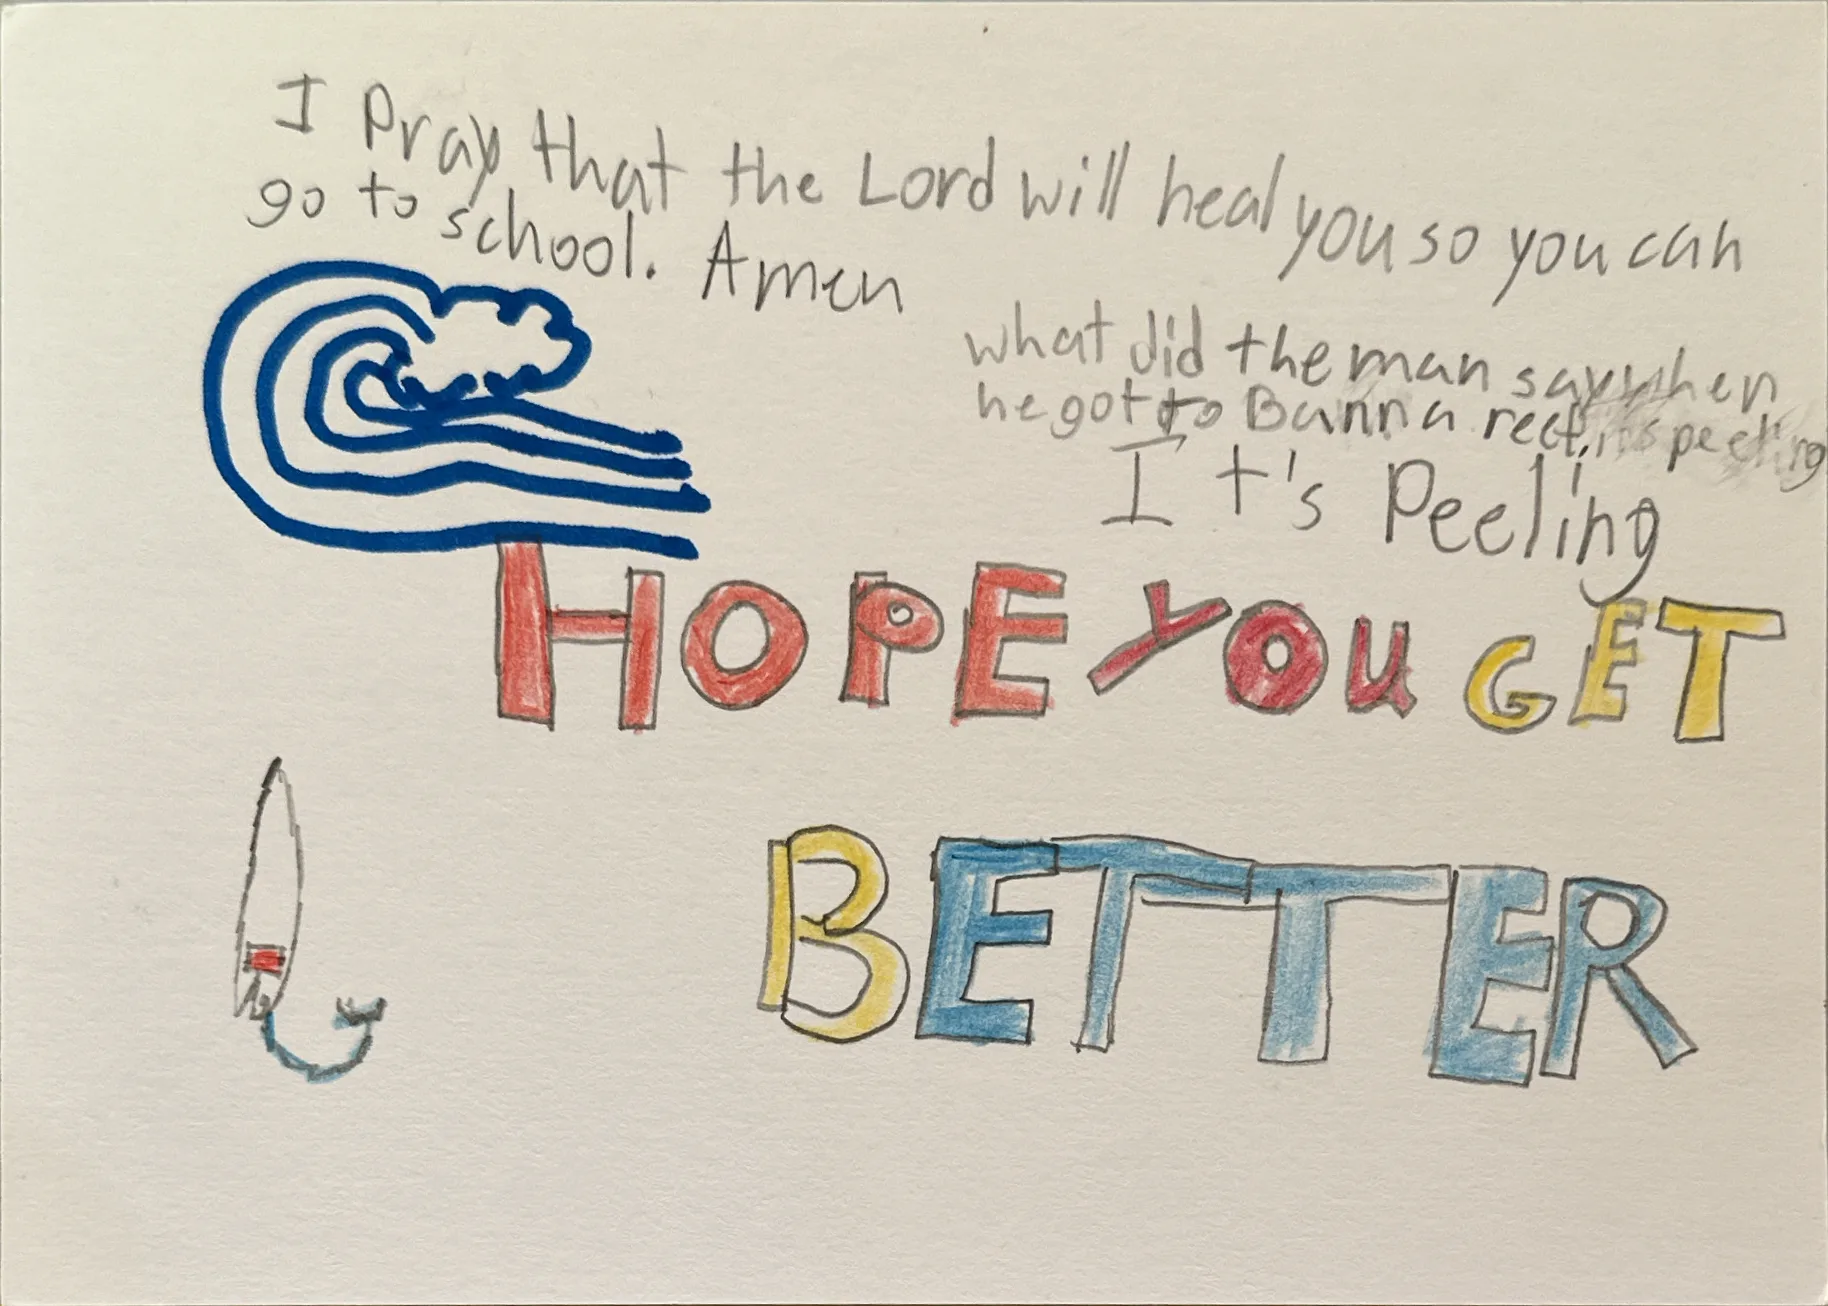 I Pray that the Lord will heal you so you can
go to school. Amen
what did the man say when
he got to Banna
It's Peeling
HOPE YOU GET
BETTER